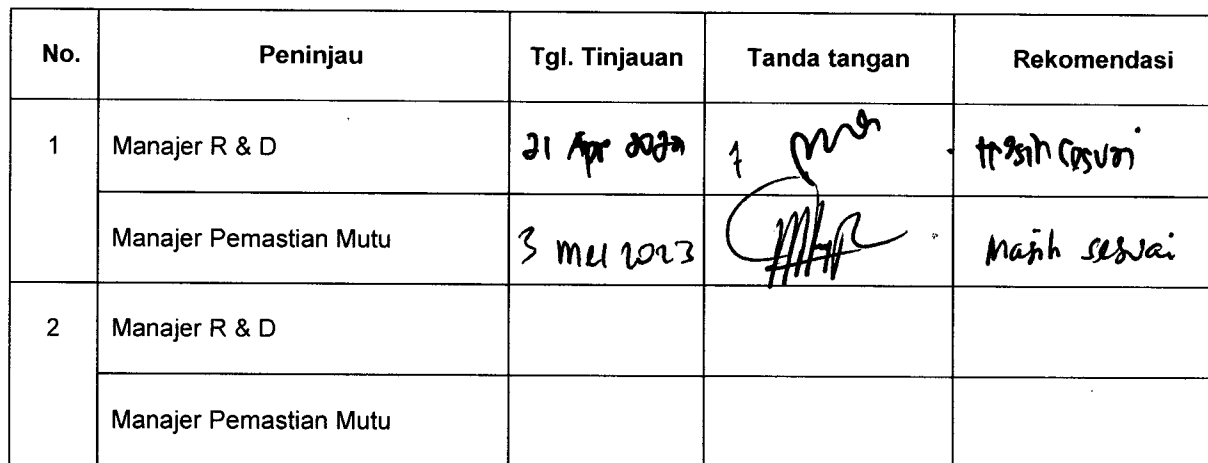 No. Peninjau Tgl. Tinjauan Tanda tangan Rekomendasi
1 Manajer R & D 21 Apr Masih sesuai
Manajer Pemastian Mutu 3 Mei 2023 Masih sesuai
2 Manajer R & D
Manajer Pemastian Mutu